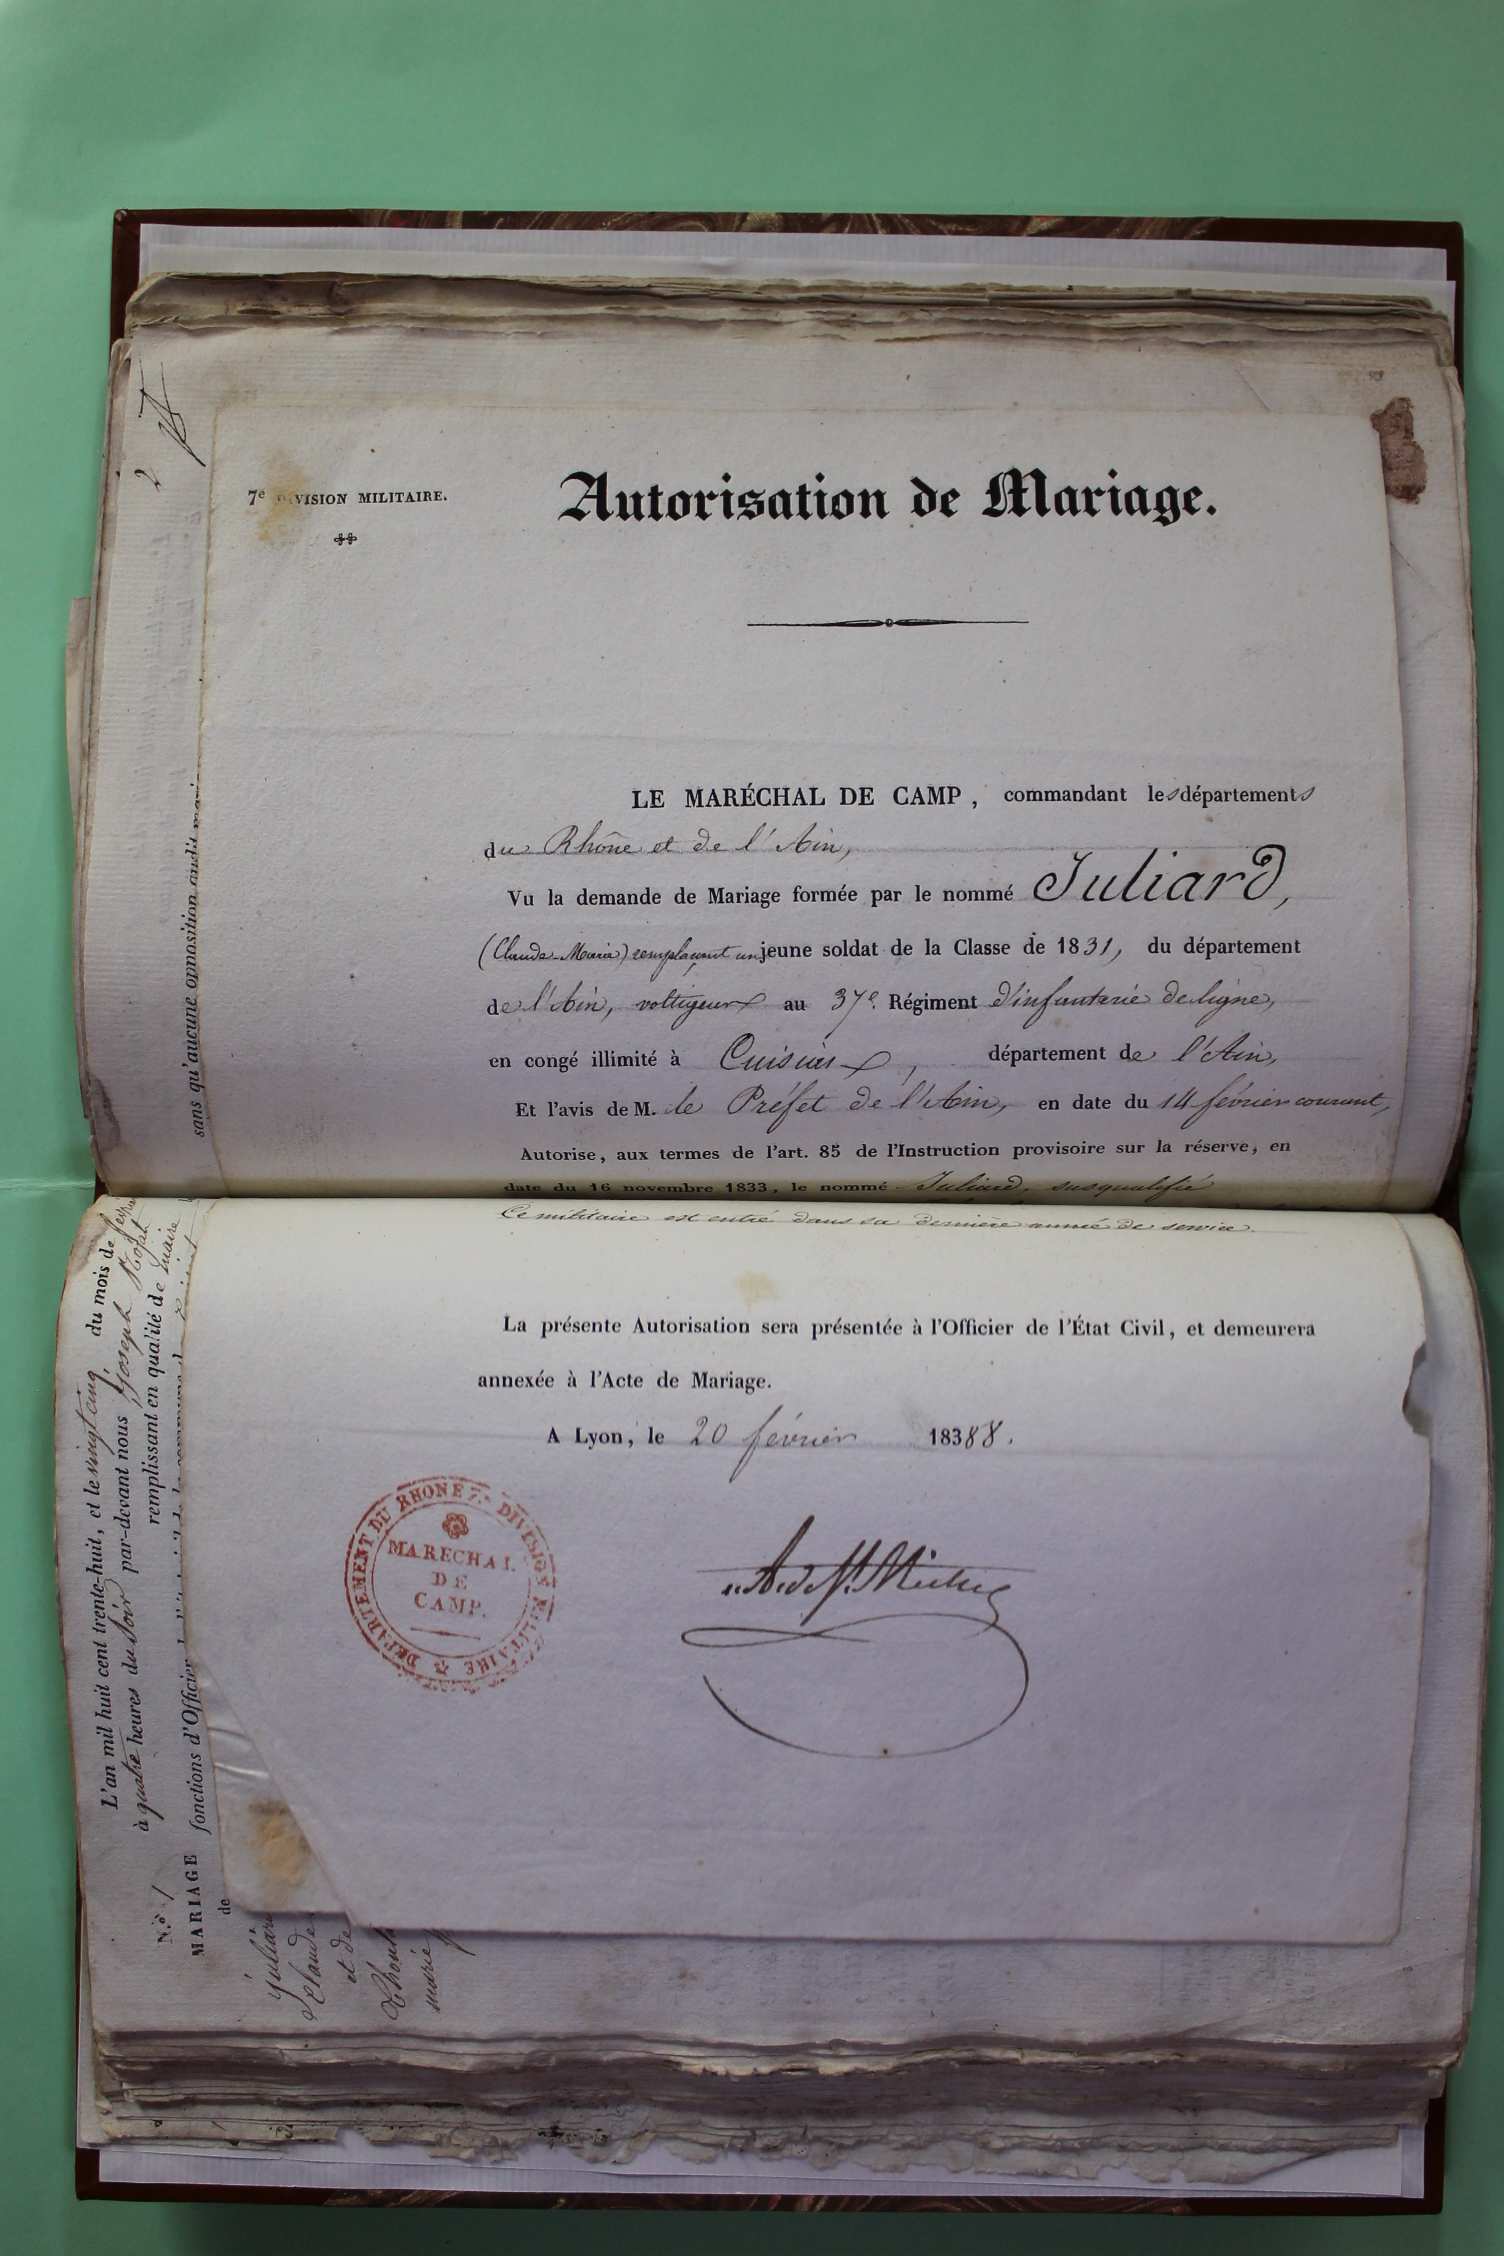 7e DIVISION MILITAIRE.
Autorisation de Mariage.
LE MARÉCHAL DE CAMP, commandant les départements
du Rhône et de l'Ain,
Vu la demande de Mariage formée par le nommé Juliard,
(Claude-Marie) remplaçant un jeune soldat de la Classe de 1831, du département
de l'Ain, voltigeur au 37e. Régiment d'infanterie de ligne,
en congé illimité à Cuisiat, département de l'Ain,
Et l'avis de M. le Préfet de l'Ain, en date du 14 février courant,
Autorise, aux termes de l'art. 85 de l'Instruction provisoire sur la réserve, en
date du 16 novembre 1833, le nommé Juliard, susqualifié
Ce militaire est entré dans sa dernière année de service.
La présente Autorisation sera présentée à l'Officier de l'État Civil, et demeurera
annexée à l'Acte de Mariage.
A Lyon, le 20 février 18388.
DEPARTEMENT DU RHONE 7e DIVISION MILITAIRE
MARECHAL
DE
CAMP.
2
sans qu'aucune opposition audit
L'an mil huit cent trente-huit, et le vingt cinq du mois de février
à quatre heures du soir par-devant nous Joseph
remplissant en qualité de maire
fonctions d'Officier
N.º 1
MARIAGE
de
Juliard
Claude
et de
marie